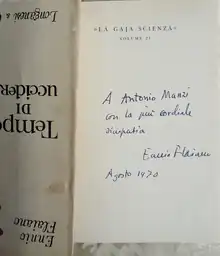 «LA GAJA SCIENZA»
VOLUME 21
A Antonio Manzi
con la più cordiale
simpatia
Ennio Flaiano
Agosto 1970
Longanesi &
Tempo
DI
uccidere
Ennio
Flaiano